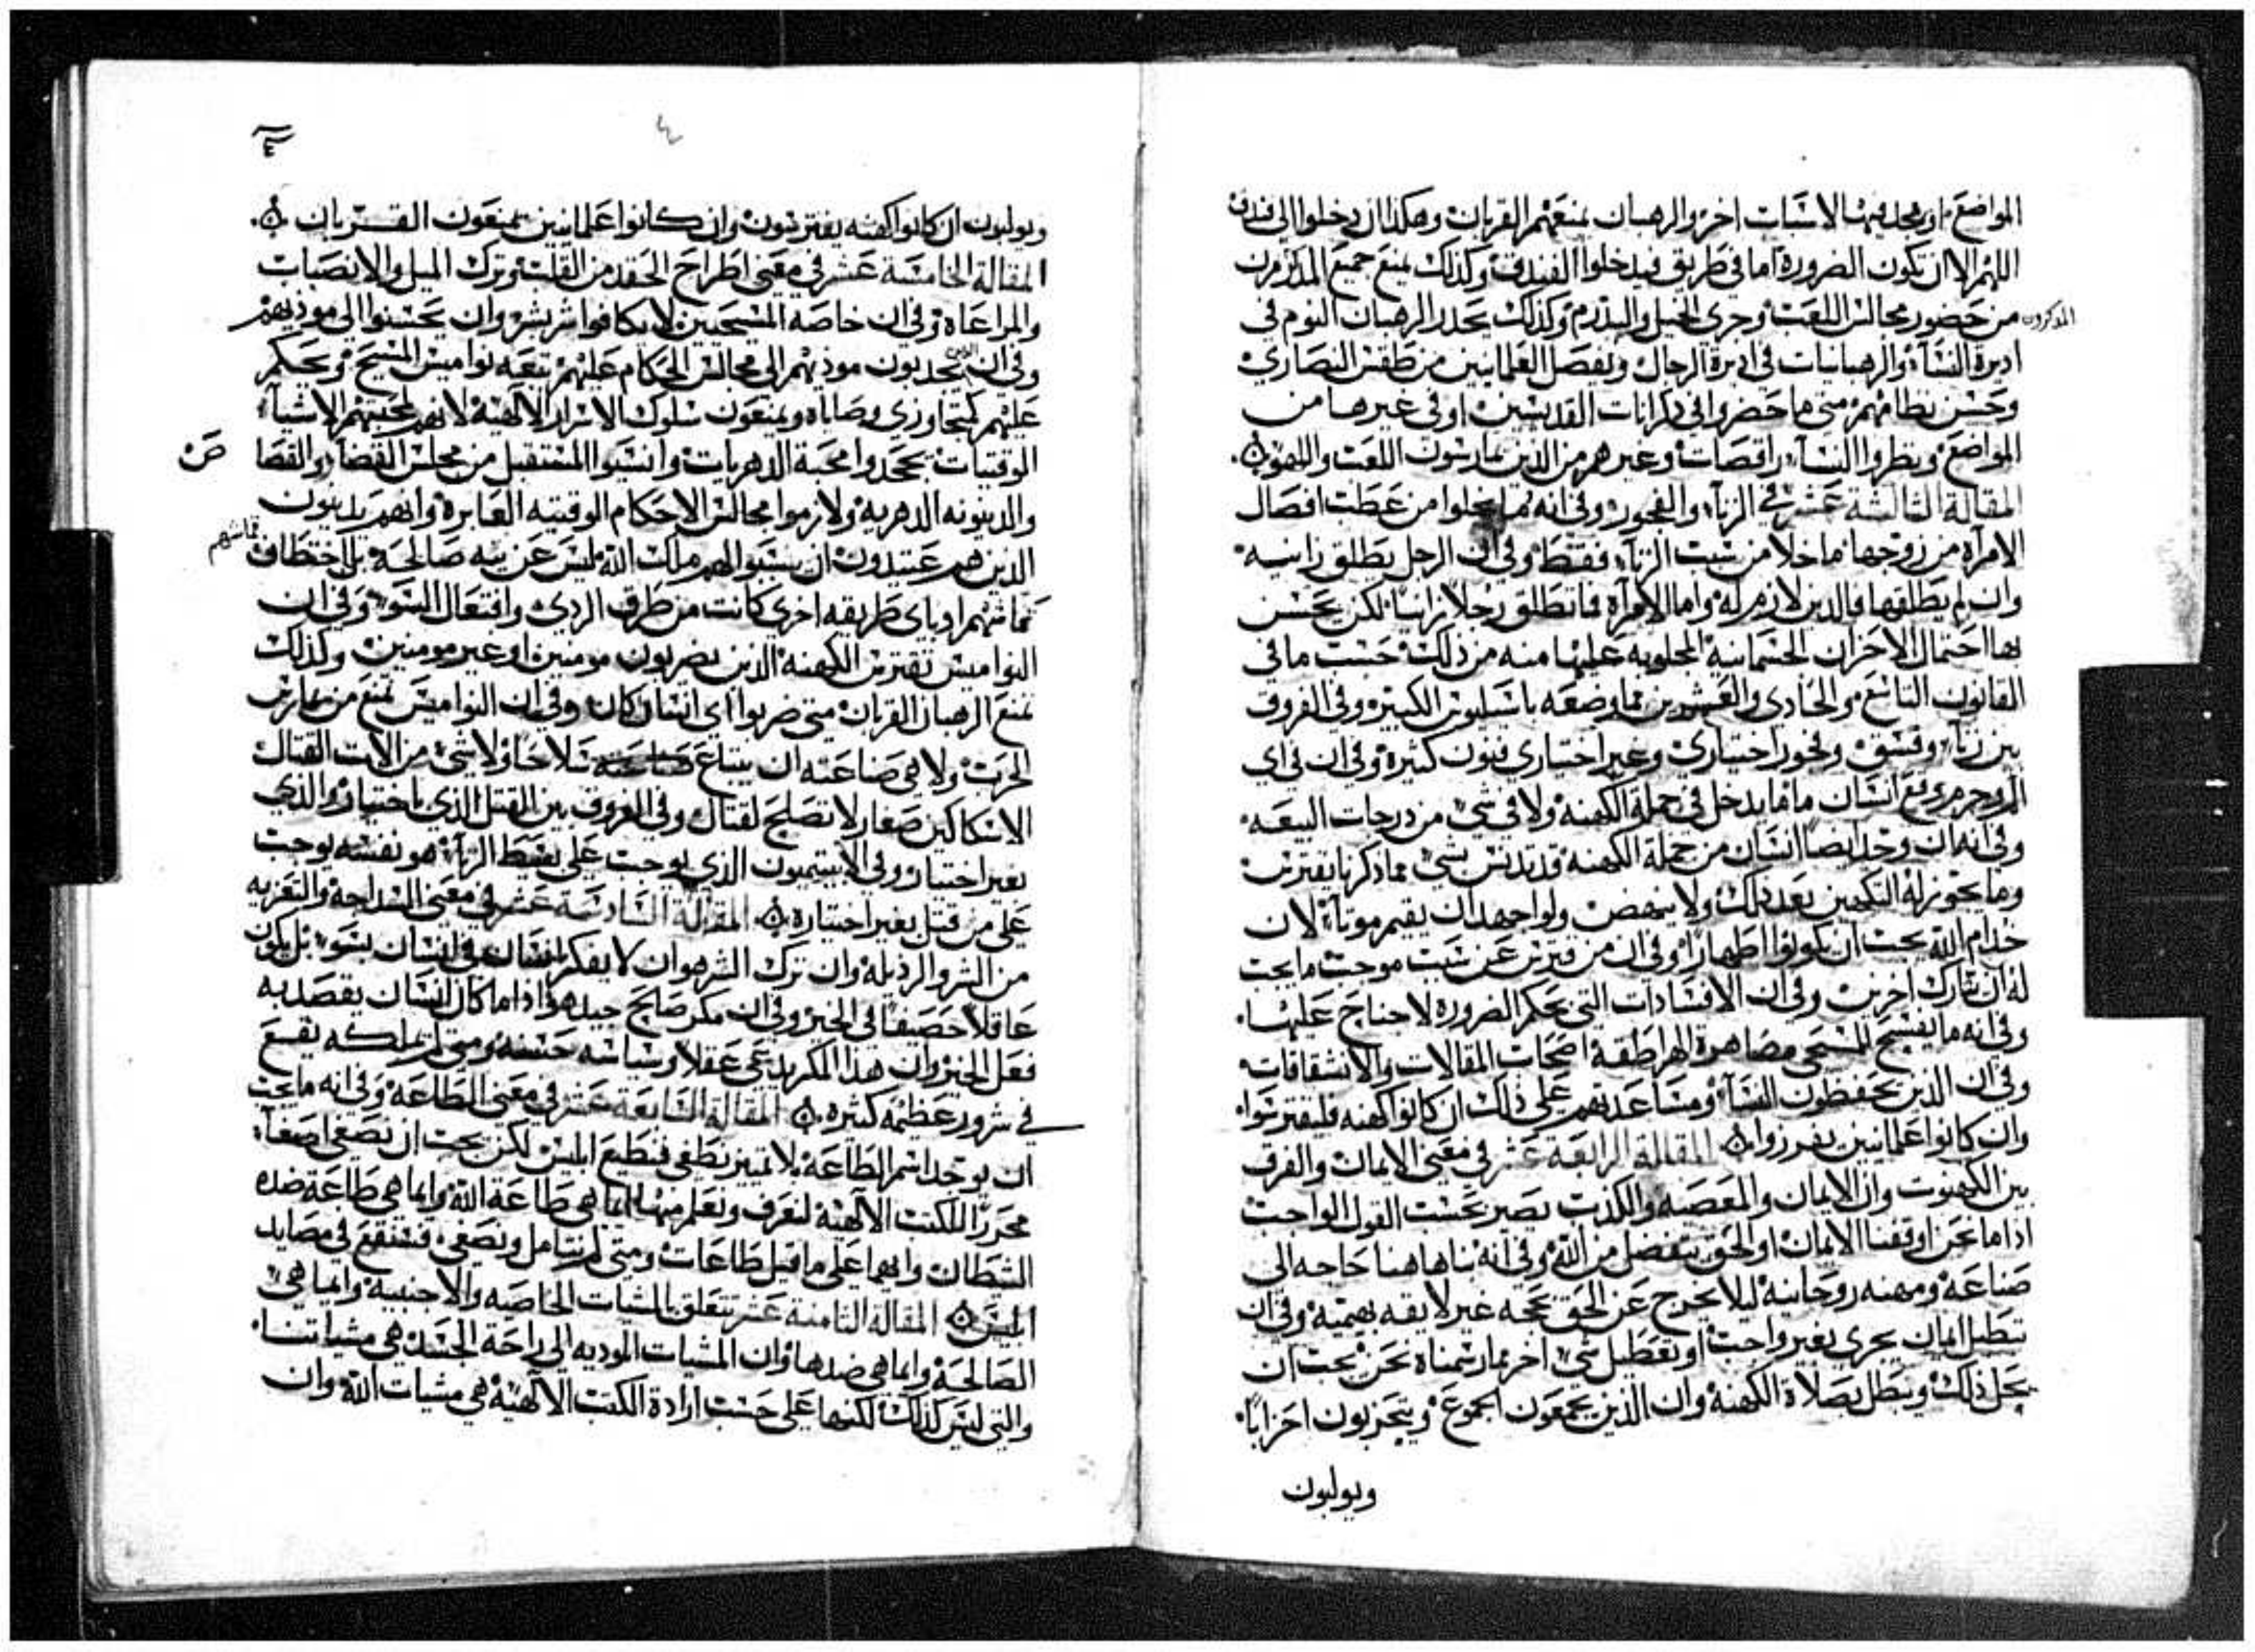 المواضع او يجد فيها لاسباب اخر والرهبان يمنعهم القربان وهكذا ان دخلوا الى فندق
اللهم الا ان تكون الضرورة اما في طريق فيدخلوا الفندق وكذلك يمنع جميع المذكورين
المذكورون
من حضور مجالس اللعب وجري الخيل والبدرم وكذلك يحذر الرهبان النوم في
اديرة النساء والرهبانيات في اديرة الرجال ويفصل العلمانيين من طقس النصارى
وحسن نظامهم متى ما حضروا في ذكرانات القديسين او في غيرها من
المواضع ونظروا النساء راقصات وغيرهم من الذين يمارسون اللعب واللهو
المقالة الثالثة عشر في الزناء والفجور وفي انه ما يخلوا من عطب افصال
الامرأة من زوجها ما خلا من سبب الزناء فقط وفي ان الرجل يطلق زانيه
وان لم يطلقها فالدين لازم له واما الامرأة فما تطلق رجلا زانيا لكن يحسن
بها احتمال الاحزان الجسمانية المجلوبه عليها منه من ذلك حسب ما في
القانون التاسع والحادي والعشرين مما وضعه باسيليوس الكبير وفي الفروق
بين زناء وفسق وفجور اختياري وغير اختياري فنون كثيرة وفي ان في اي
انسان ما فما يدخل في جملة الكهنة ولا في شي من درجات البيعه
وفي انه ان وجد ايضا انسان من جملة الكهنة قد تدنس بشي مما ذكرنا يفترس
وما يجوز له التكهين بعد ذلك ولا ينهض ولو اجهد ان يقيم موتا لان
خدام الله يجب ان يكونوا اطهارا وفي ان من فترس عن سبب موجب ما يجب
له ان يشارك اخرين وفي ان الافسادات التي بحكم الضرورة لا جناح عليها
وفي انه ما يفسح للمسيحي مصاهرة الهراطقة اصحاب المقالات والانشقاقات
وفي ان الذين يخفطون النساء ومساعدتهم على ذلك ان كانوا كهنه فليفترسوا
وان كانوا علمانيين يفرزوا المقالة الرابعة عشر في معنى الايمان والفرق
بين الكهنوت وان الايمان والمعصيه والكذب يصير بحسب القول الواجب
اذا ما نحن اوقفنا الايمان او الحق يتفضل من الله وفي انه بنا هاهنا حاجه الى
صناعة ومهنه روحانيه ليلا يخرج عن الحق بحجه غير لايقه بهيميه وفي ان
تبطيل ايمان يجرى بغير واجب او تعطيل شي اخر مما رسمناه نحن يجب ان
يحل ذلك ويبطل بصلاة الكهنة وان الذين يجمعون الجموع ويتحزبون احزابا
ويولبون
٤
٤
ويولبون ان كانوا كهنه يفترسون وان كانوا علمانيين يمنعون القربان
المقالة الخامسة عشر في معنى اطراح الحقد من القلب وترك الميل والانصباب
والمراعاة وفي ان خاصة المسيحيين لا يكافوا شر بشر وان يحسنوا الى موذيهم
وفي ان الذين يجدبون موذيهم الى مجالس الحكام عليهم تبعه نواميس المسيح ويحكم
عليهم كمتجاوزي وصاياه ويمنعون سلوك الاسرار الالهية لانهم لمحبتهم الاشياء
الوقتيات بحجدوا محبة الدهريات وانسيوا المستقبل من مجلس القضاء والقضا
صح
والدينونه الدهرية ولازموا مجالس الاحكام الوقتيه العابرة وانهم يدينون
الذين هم عتيدون ان يسبوا لهم ملكت الله ليس عن نيه صالحة بل اختطاف
قماشهم
قماشهم او باى طريقه اخرى كانت من طرق الردي وافتعال السو وفي ان
النواميس تفترس الكهنه الذين يضربون مومنين او غير مومنين وكذلك
تمنع الرهبان القربان متى ضربوا اى انسان كان وفي ان النواميس تمنع من يمارس
الحرب ولا هي صناعته ان يبتاع سلاحا ولا شي من الات القتال
الا سكاكين صغار لا تصلح لقتال وفي الفروق بين القتل الذي باختيار والذي
بغير اختيار وفي الابيتيميون الذي يوجب على بسيط الزناء هو نفسه يوجب
على من قتل بغير اختياره المقالة السادسة عشر في معنى السداجة والتعزيه
من الشر والرذيلة وان ترك الشر هو ان لا يفكر انسان على انسان بسو بل يكون
عاقلا حصيفا في الخير وفي ان مكر صالح جيد هو اذا ما كان انسان يقصد به
فعل الخير وان هذا المكر يدعى عقلا وسياسه حسنه ومتى لم نملكه نقع
في شرور عظيمة كثيره المقالة السابعة عشر في معنى الطاعة وفي انه ما يجب
ان يوخذ اسم الطاعة بلا تمييز نطغى فنطيع ابليس لكن يجب ان نصغى اصغاء
محررا للكتب الالهية لنعرف ونعلم منها ايما هي طاعة الله وايما هي طاعة ضده
الشيطان وايهما على ما قيل طاعات ومتى لم نتامل ونصغى فسنقع في مصايد
ابليس المقالة الثامنة عشر تتعلق بالمشيات الخاصيه والاجنبيه وايما هي
الصالحة وايما هي ضدها وان المشيات الموديه الى راحة الجسد هي مشياتنا
والتي ليس كذلك لكنها على حسب ارادة الكتب الالهية هي مشيات الله وان